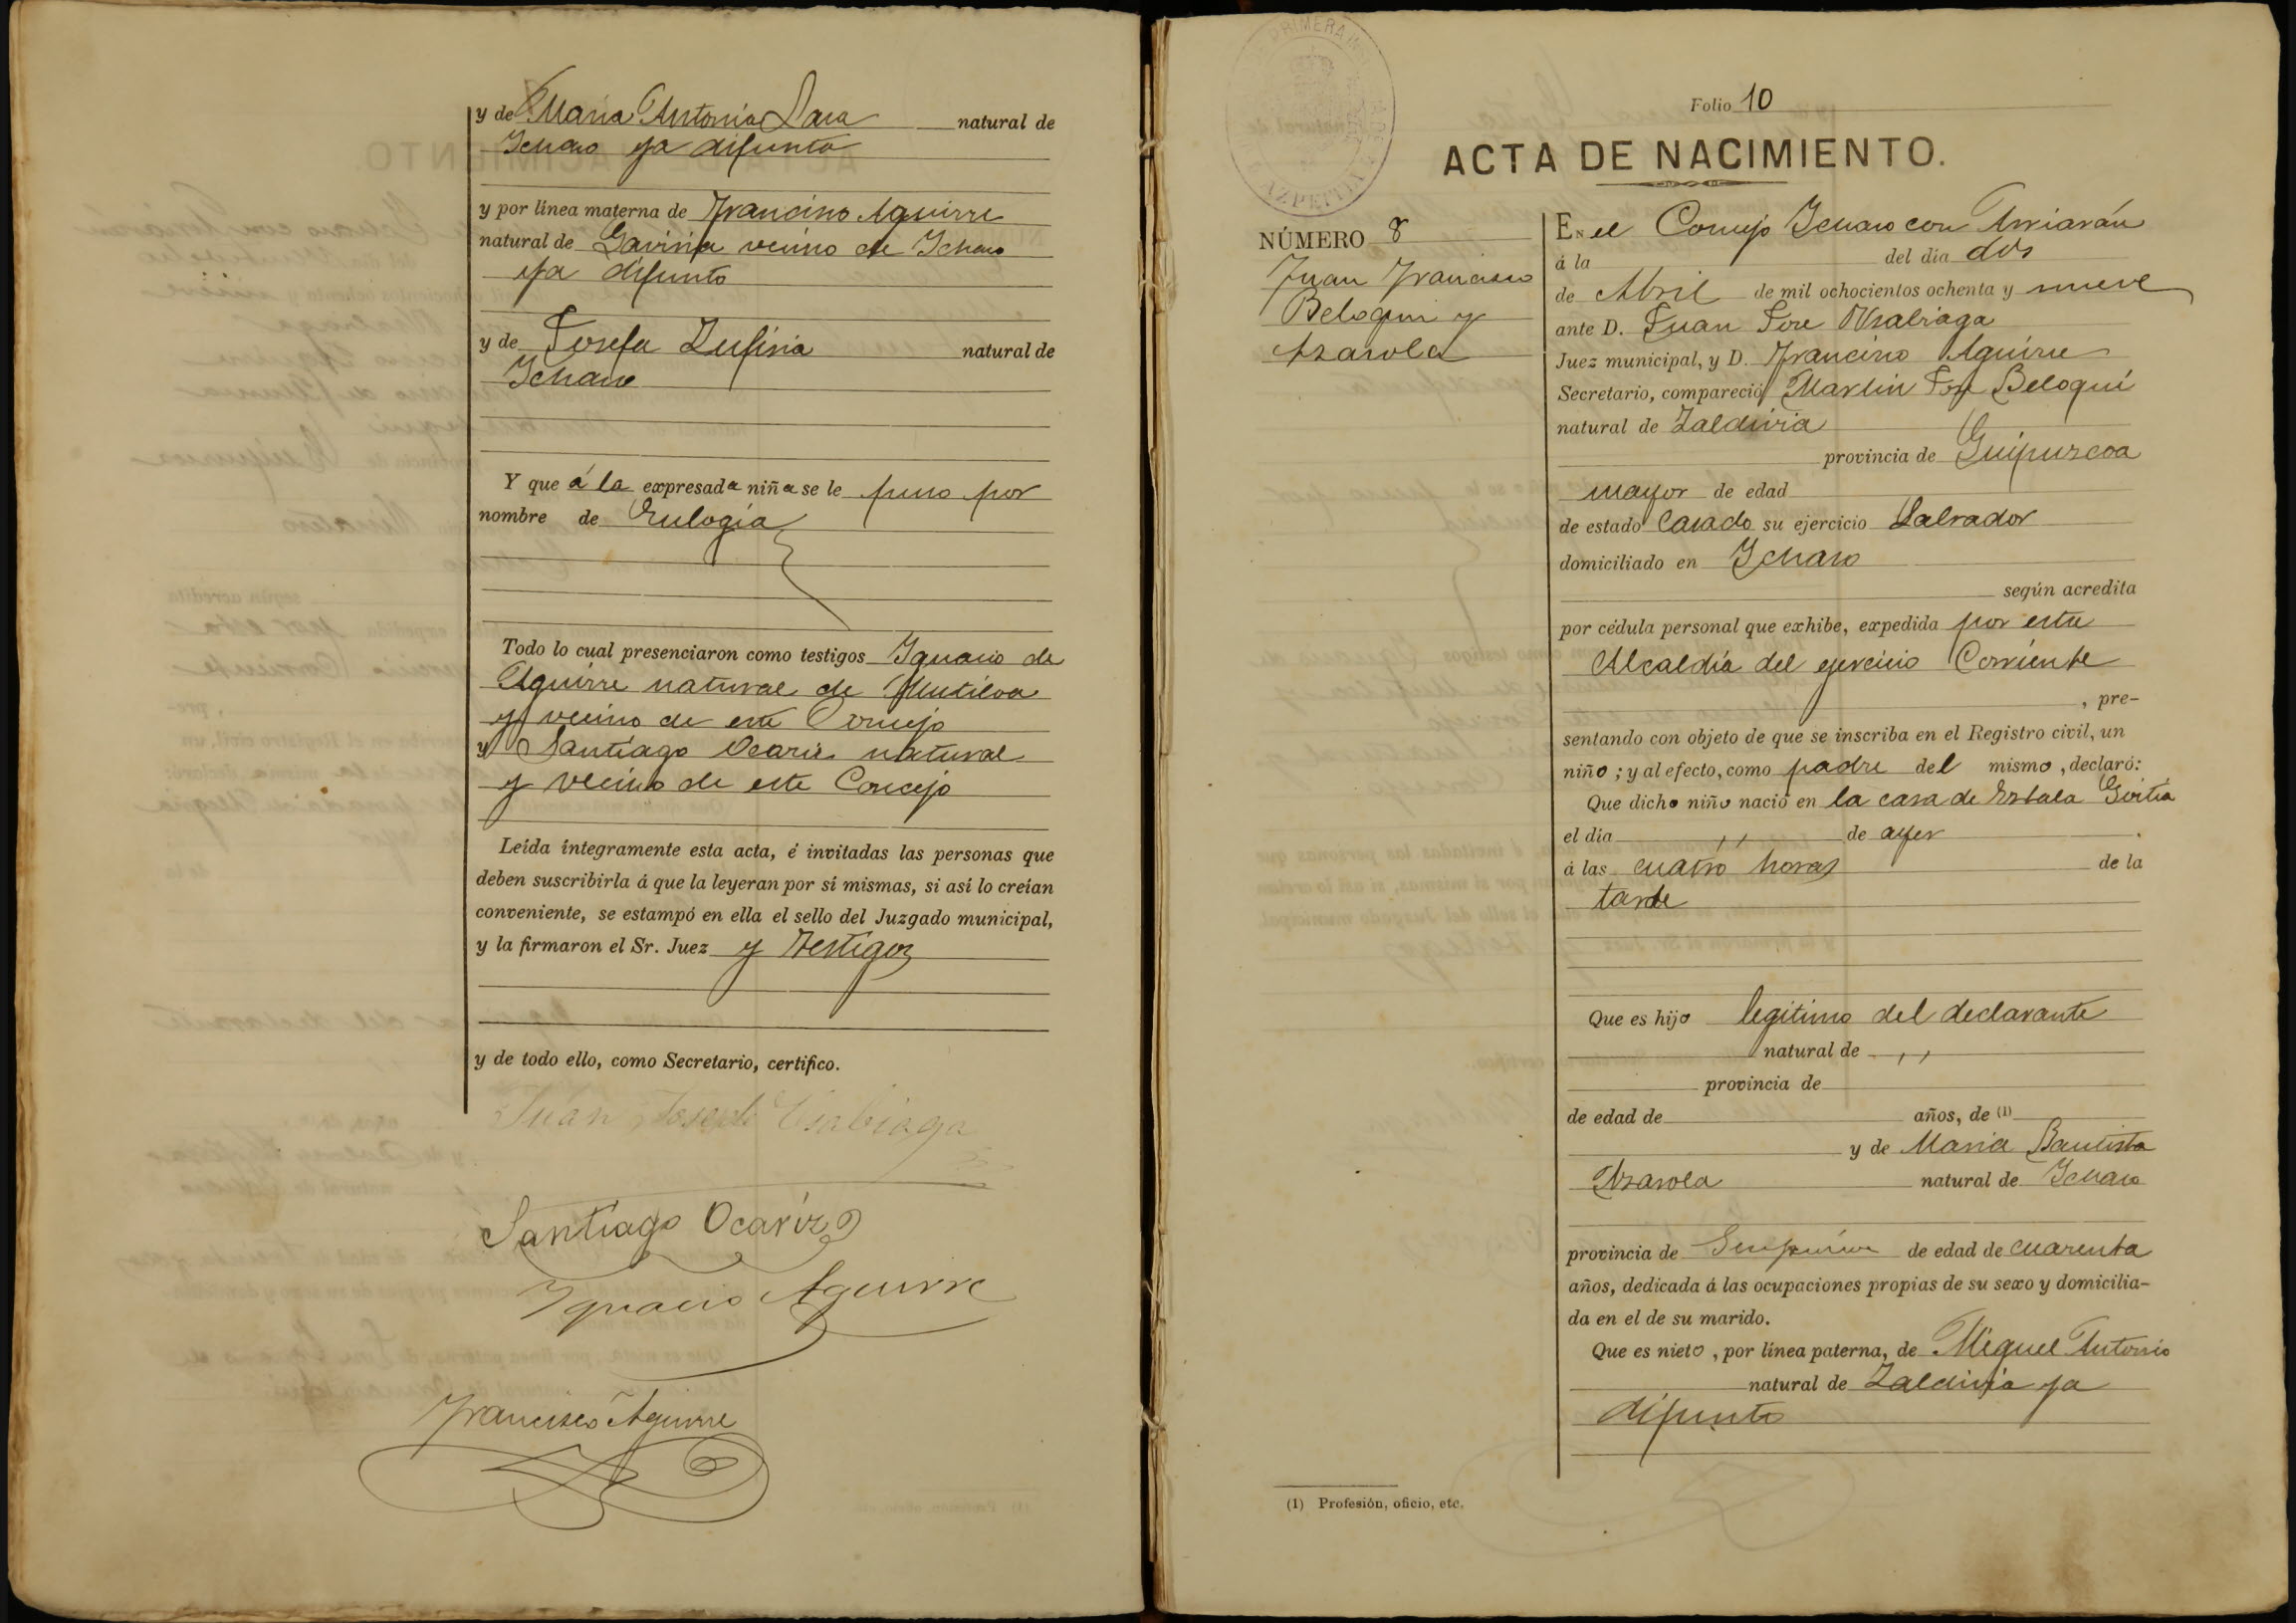 y de Maria Antonia Lasa natural de
Ichaso ya difunta
y por línea materna de Francisco Aguirre
natural de Gaviria vecino de Ichaso
ya difunto
y de Josefa Zufiria natural de
Ichaso
Y que á la expresada niña se le puso por
nombre de Eulogia
Todo lo cual presenciaron como testigos Ignacio de
Aguirre natural de Mutiloa
y vecino de este Concejo
y Santiago Ocariz natural
y vecino de este Concejo
Leída íntegramente esta acta, é invitadas las personas que
deben suscribirla á que la leyeran por sí mismas, si así lo creían
conveniente, se estampó en ella el sello del Juzgado municipal,
y la firmaron el Sr. Juez y testigos
y de todo ello, como Secretario, certifico.
Juan Joseph Usabiaga
Santiago Ocariz
Ignacio Aguirre
Francisco Aguirre
PRIMERA
AZPEITIA
Folio 10
ACTA DE NACIMIENTO.
NÚMERO 8
Juan Francisco
Beloqui y
Azarola
En el Concejo Ichaso con Arriarán
á la del dia dos
de Abril de mil ochocientos ochenta y nueve
ante D. Juan Jose Usabiaga
Juez municipal, y D. Francisco Aguirre
Secretario, compareció Martin Jose Beloqui
natural de Zaldivia
provincia de Guipuzcoa
mayor de edad
de estado Casado su ejercicio Labrador
domiciliado en Ichaso
según acredita
por cédula personal que exhibe, expedida por esta
Alcaldía del ejercicio Corriente
, pre-
sentando con objeto de que se inscriba en el Registro civil, un
niño; y al efecto, como padre del mismo, declaró:
Que dicho niño nació en la casa de Estala Goitia
el dia ,, de ayer
á las cuatro horas de la
tarde
Que es hijo legitimo del declarante
natural de ,,
provincia de
de edad de años, de (1)
y de Maria Bautista
Azarola natural de Ichaso
provincia de Guipuzcoa de edad de cuarenta
años, dedicada á las ocupaciones propias de su sexo y domicilia-
da en el de su marido.
Que es nieto, por línea paterna, de Miguel Antonio
natural de Zaldivia ya
difunto
(1) Profesión, oficio, etc.